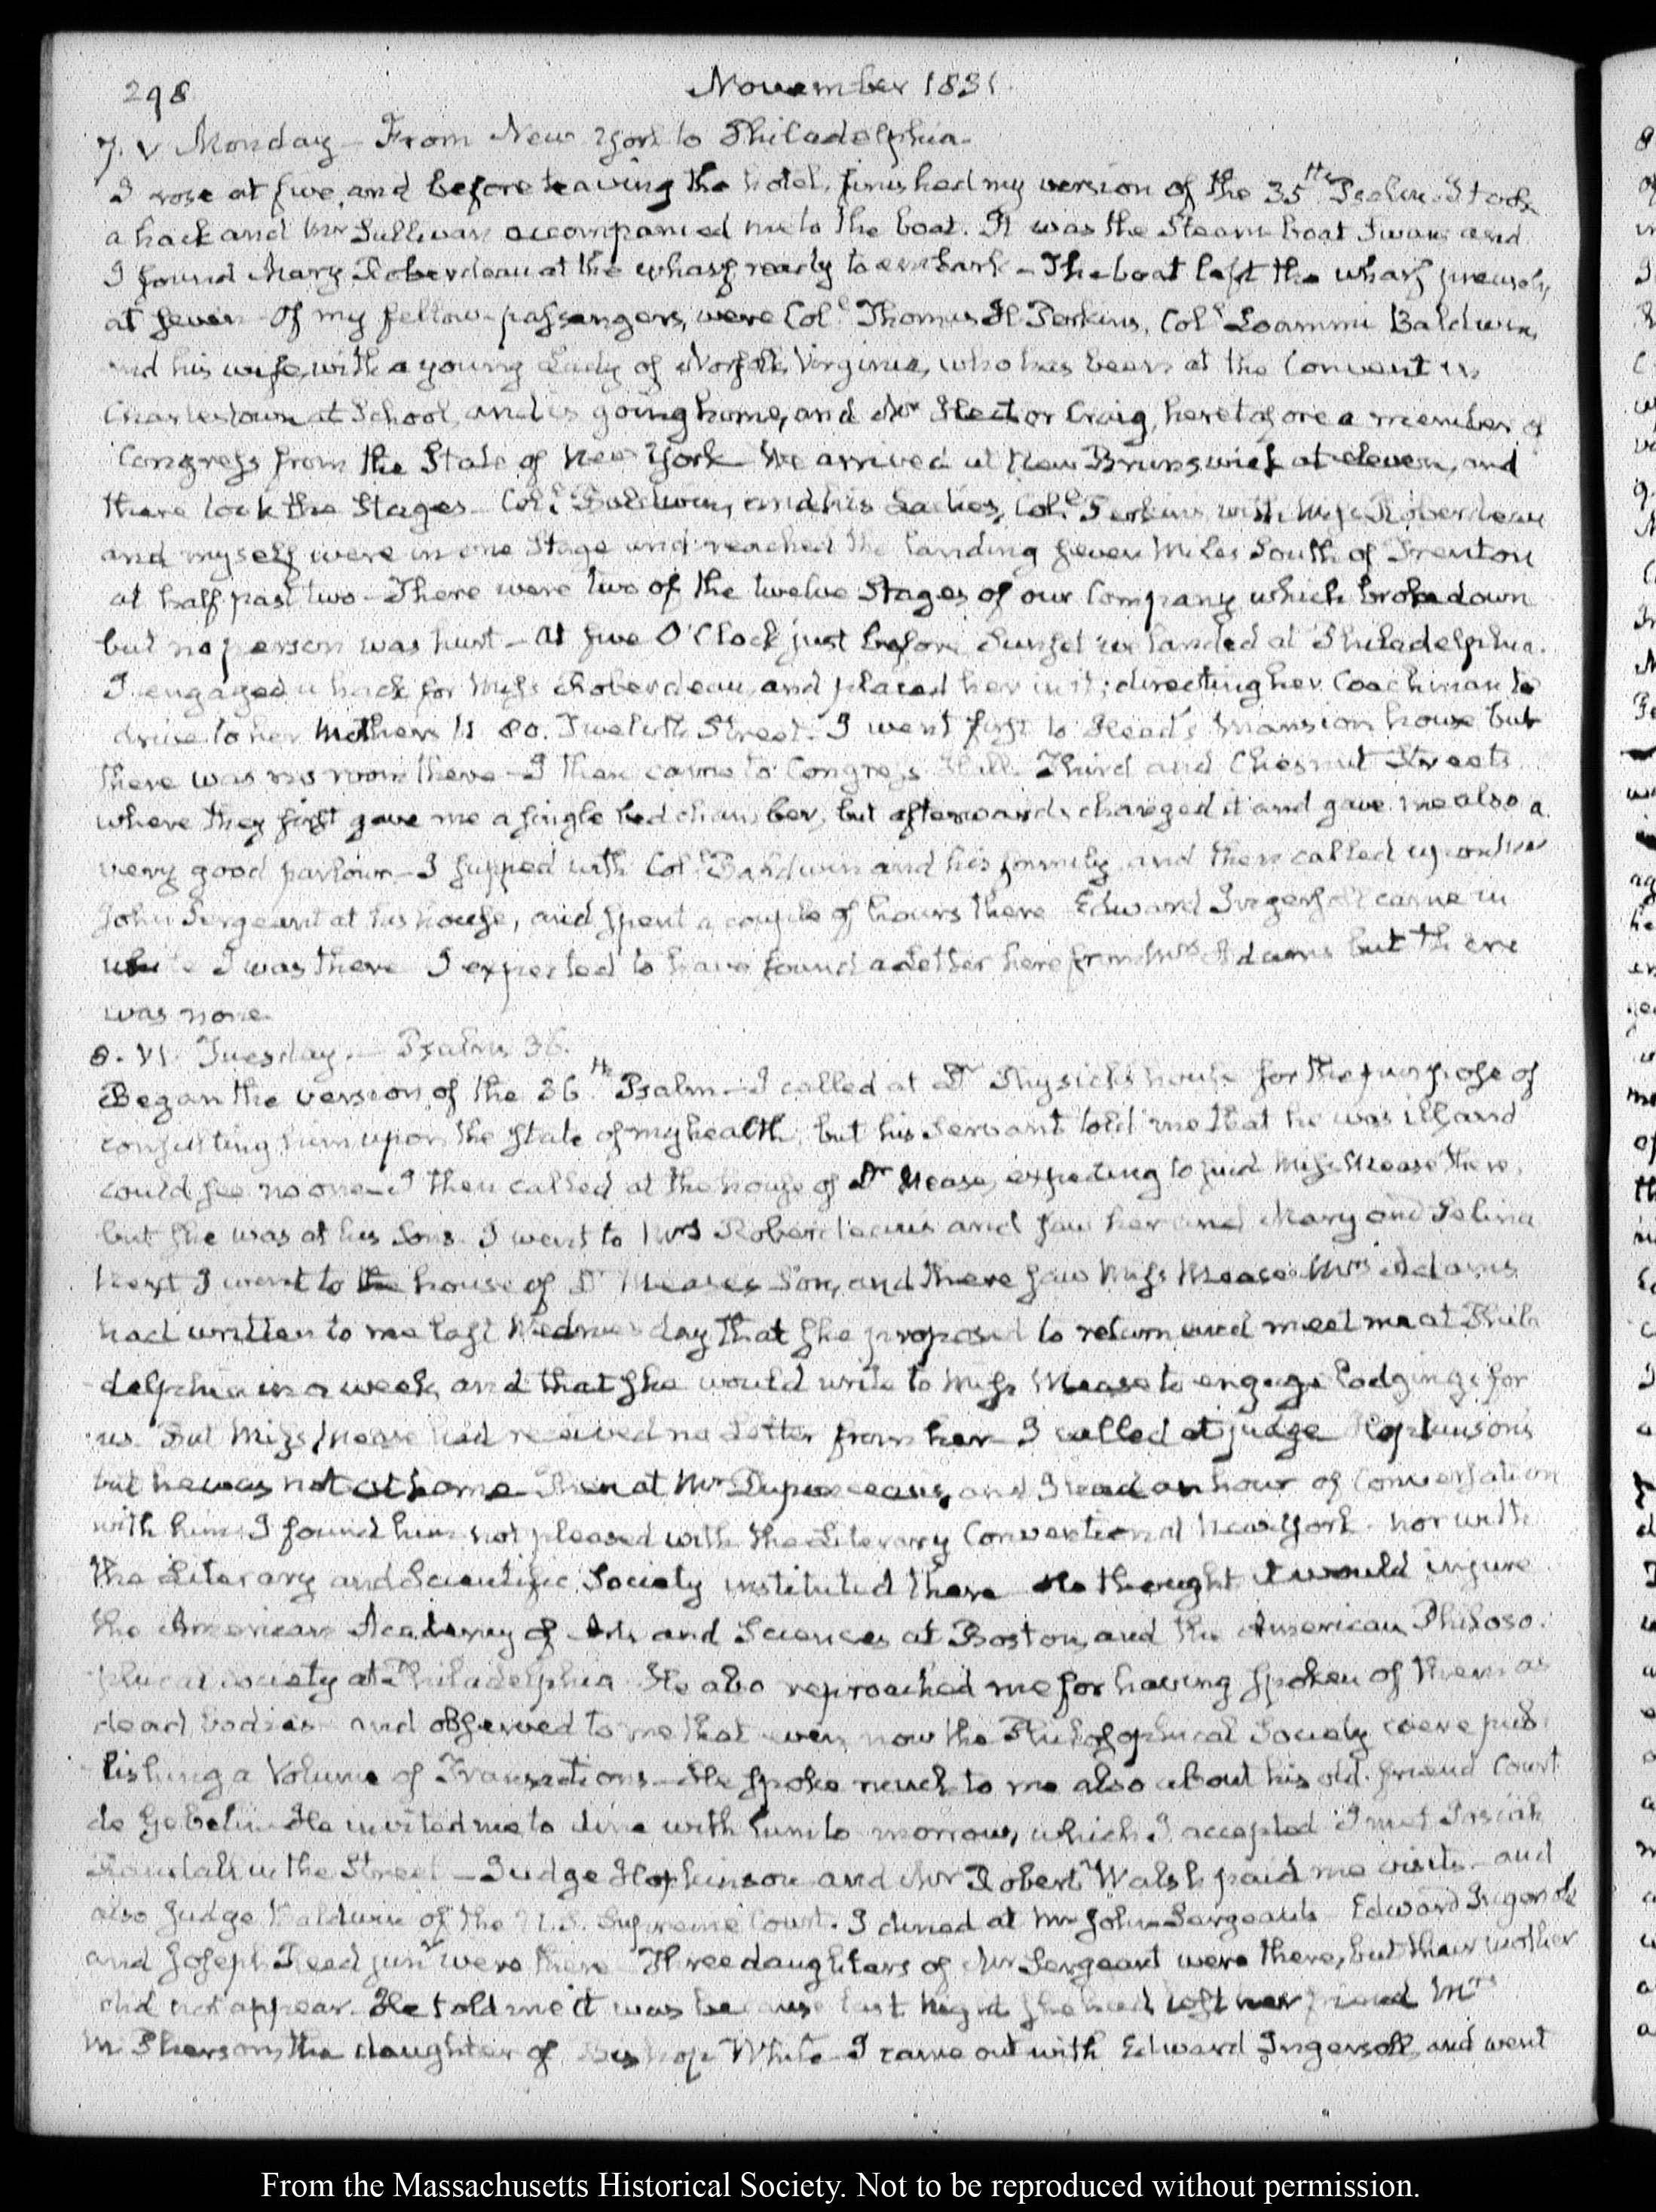 298
November 1831.
7. V. Monday — From New York to Philadelphia.
I rose at five, and before leaving the hotel, finished my version of the 35th Psalm. I took
a hack and Mr Sullivan accompanied me to the boat. It was the Steam-boat Swan and
I found Mary Roberdeau at the wharf ready to embark — The boat left the wharf precisely
at seven — Of my fellow-passengers, were Coll Thomas H Perkins, Coll Loammi Baldwin,
and his wife, with a young Lady of Norfolk Virginia, who has been at the Convent in
Charlestown at School, and is going home, and Mr Hector Craig, heretofore a member of
Congress from the State of New York — We arrived at New Brunswick at eleven, and
there took the Stages — Coll Baldwin, and his Ladies, Coll Perkins with Miss Roberdeau
and myself were in one Stage and reached the landing seven Miles South of Trenton
at half past two — There were two of the twelve Stages of our Company which broke down
but no person was hurt — At five O'Clock just before Sunset we landed at Philadelphia.
I engaged a hack for Miss Roberdeau and placed her in it; directing her Coachman to
drive to her Mothers N. 80. Twelfth Street. I went first to Head's Mansion house but
there was no room there — I then came to Congress Hall Third and Chesnut Streets
where they first gave me a single bed chamber, but afterwards changed it and gave me also a
very good parlour — I supped with Coll Baldwin and his family and then called upon Mr
John Sergeant at his house, and spent a couple of hours there Edward Ingersoll came in
while I was there I expected to have found a Letter here from Mrs Adams but there
was none.
8. VI. Tuesday. — Psalm 36.
Began the version of the 36th Psalm — I called at Dr Physick's house for the purpose of
consulting him upon the state of my health, but his Servant told me that he was ill and
could see no one — I then called at the house of Dr Mease, expecting to find Miss Mease there,
but she was at his Sons. I went to Mrs Roberdeau's and saw her and Mary and Selina
Next I went to the house of Dr Mease's Son, and there saw Miss Mease Mrs Adams
had written to me last Wednesday that she proposed to return and meet me at Phila
delphia in a week, and that she would write to Miss Mease to engage Lodgings for
us. But Miss Mease had received no Letter from her — I called at judge Hopkinson's
but he was not at home — Then at Mr Duponceau's, and I had an hour of Conversation
with him. I found him not pleased with the Literary Convention at New York. nor with
the Literary and Scientific Society instituted there He thought it would injure
the American Academy of Arts and Sciences at Boston, and the American Philoso.
phical Society at Philadelphia He also reproached me for having spoken of them as
dead bodies — and observed to me that even now the Philosophical Society were pub
lishing a Volume of Transactions — He spoke much to me also about his old friend Court
de Gebelin — He invited me to dine with him to morrow, which I accepted I met Josiah
Randall in the Street — Judge Hopkinson and Mr Robert Walsh paid me visits — and
also Judge Baldwin of the U.S. Supreme Court. I dined at Mr John Sergeant's — Edward Ingersoll
and Joseph Reed junr were there Three daughters of Mr Sergeant were there, but their mother
did not appear. He told me it was because last Night she had lost her friend Mrs
McPherson, the daughter of Bishop White — I came out with Edward Ingersoll, and went
From the Massachusetts Historical Society. Not to be reproduced without permission.